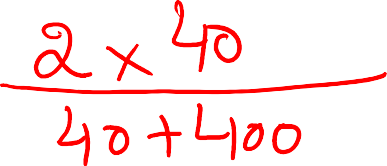 2 × 40
40 + 400